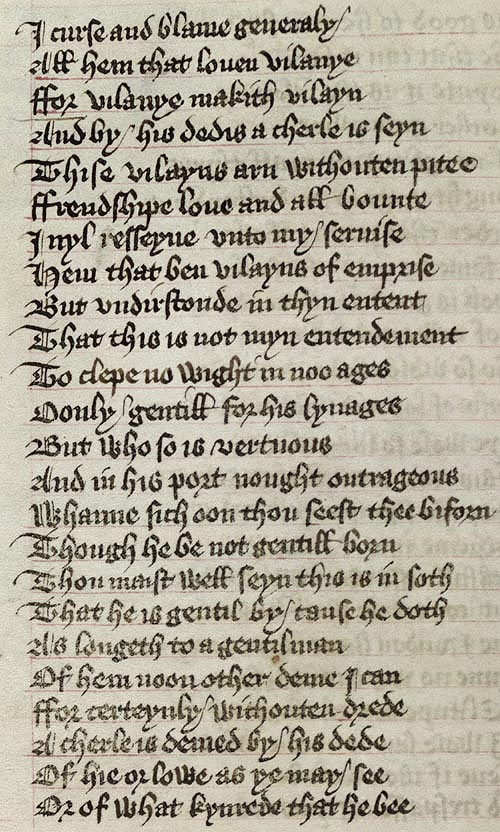 I curse and blame generaly /
All hem that louen vilanye
ffor vilanye makith vilayn
And by / his dedis a cherle is seyn
Thise vilayns arn withouten pitee
ffrendshipe loue and all bounte
I nyl resseyue vnto my / seruise
Hem that ben vilayns of emprise
But vndirstonde in thyn entent
That this is not myn entendement
To clepe no wight in noo ages
Oonly / gentill for his lynages
But who so is vertuous
And in his port nought outrageous
Whanne sich oon thou seest thee biforn
Though he be not gentill born
Thou maist well seyn this is in soth
That he is gentil by / cause he doth
As longeth to a gentilman
Of hem noon other deme I can
ffor certeynly / withouten drede
A cherle is demed by / his dede
Of hie or lowe as ye may / see
Or of what kynrede that he bee